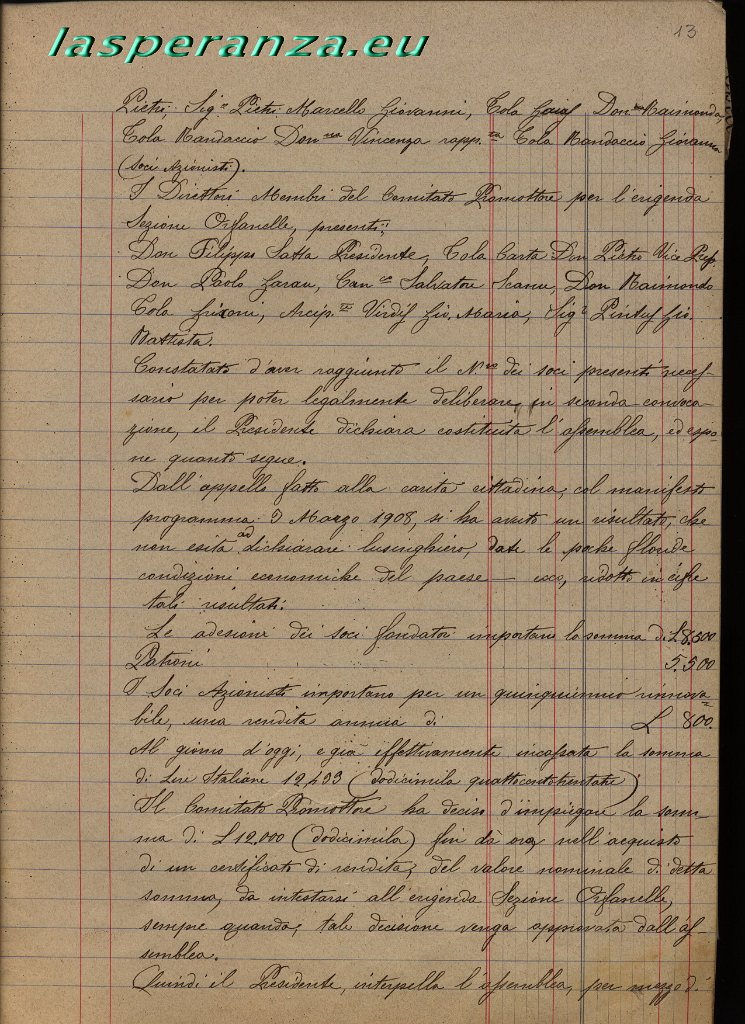 lasperanza.eu
13
Pietri, Sig.r Pietri Marcello Giovanni, Cola Don.na Raimonda,
Cola Randaccio Don.na Vincenza rapp.ta Cola Randaccio Giovanna
(Soci Azionisti).
I Direttori Membri del Comitato Promottore per l'erigenda
Sezione Orfanelle, presenti;
Don Filippo Satta Presidente, Cola Carta Don Pietro Vice Pres.
Don Paolo Zarau, Can.co Salvatore Scanu, Don Raimondo
Cola Arcip.te Virdis Gio. Maria, Sig.r Pintus Gio.
Battista.
Constatato d'aver raggiunto il N.ro dei soci presenti neces-
sario per poter legalmente deliberare, in seconda convoca-
zione, il Presidente dichiara costituita l'assemblea, ed espo-
ne quanto segue.
Dall'appello fatto alla carità cittadina, col manifesto
programma Marzo 1908, si ha avuto un risultato, che
non esita ad dichiarare lusinghiero, date le poche floride
condizioni economiche del paese — ecco, ridotti in cifre
tali risultati:
Le adesioni dei soci fondatori importano la somma di £ 8.500
Patroni 5.500
I Soci Azionisti importano per un quinquennio rinnova=
bile, una rendita annua di £ 800.
Al giorno d'oggi, e già effettivamente incassata la somma
di Lire Italiane 12,433 (dodicimila quattrocentotrentatre)
Il Comitato Promottore ha deciso d'impiegare la som-
ma di £ 12,000 (dodicimila) fin dà ora, nell'acquisto
di un certificato di rendita, del valore nominale di detta
somma, da intestarsi all'erigenda Sezione Orfanelle,
sempre quando, tale decisione venga approvata dall'as-
semblea.
Quindi il Presidente, interpella l'assemblea, per mezzo di